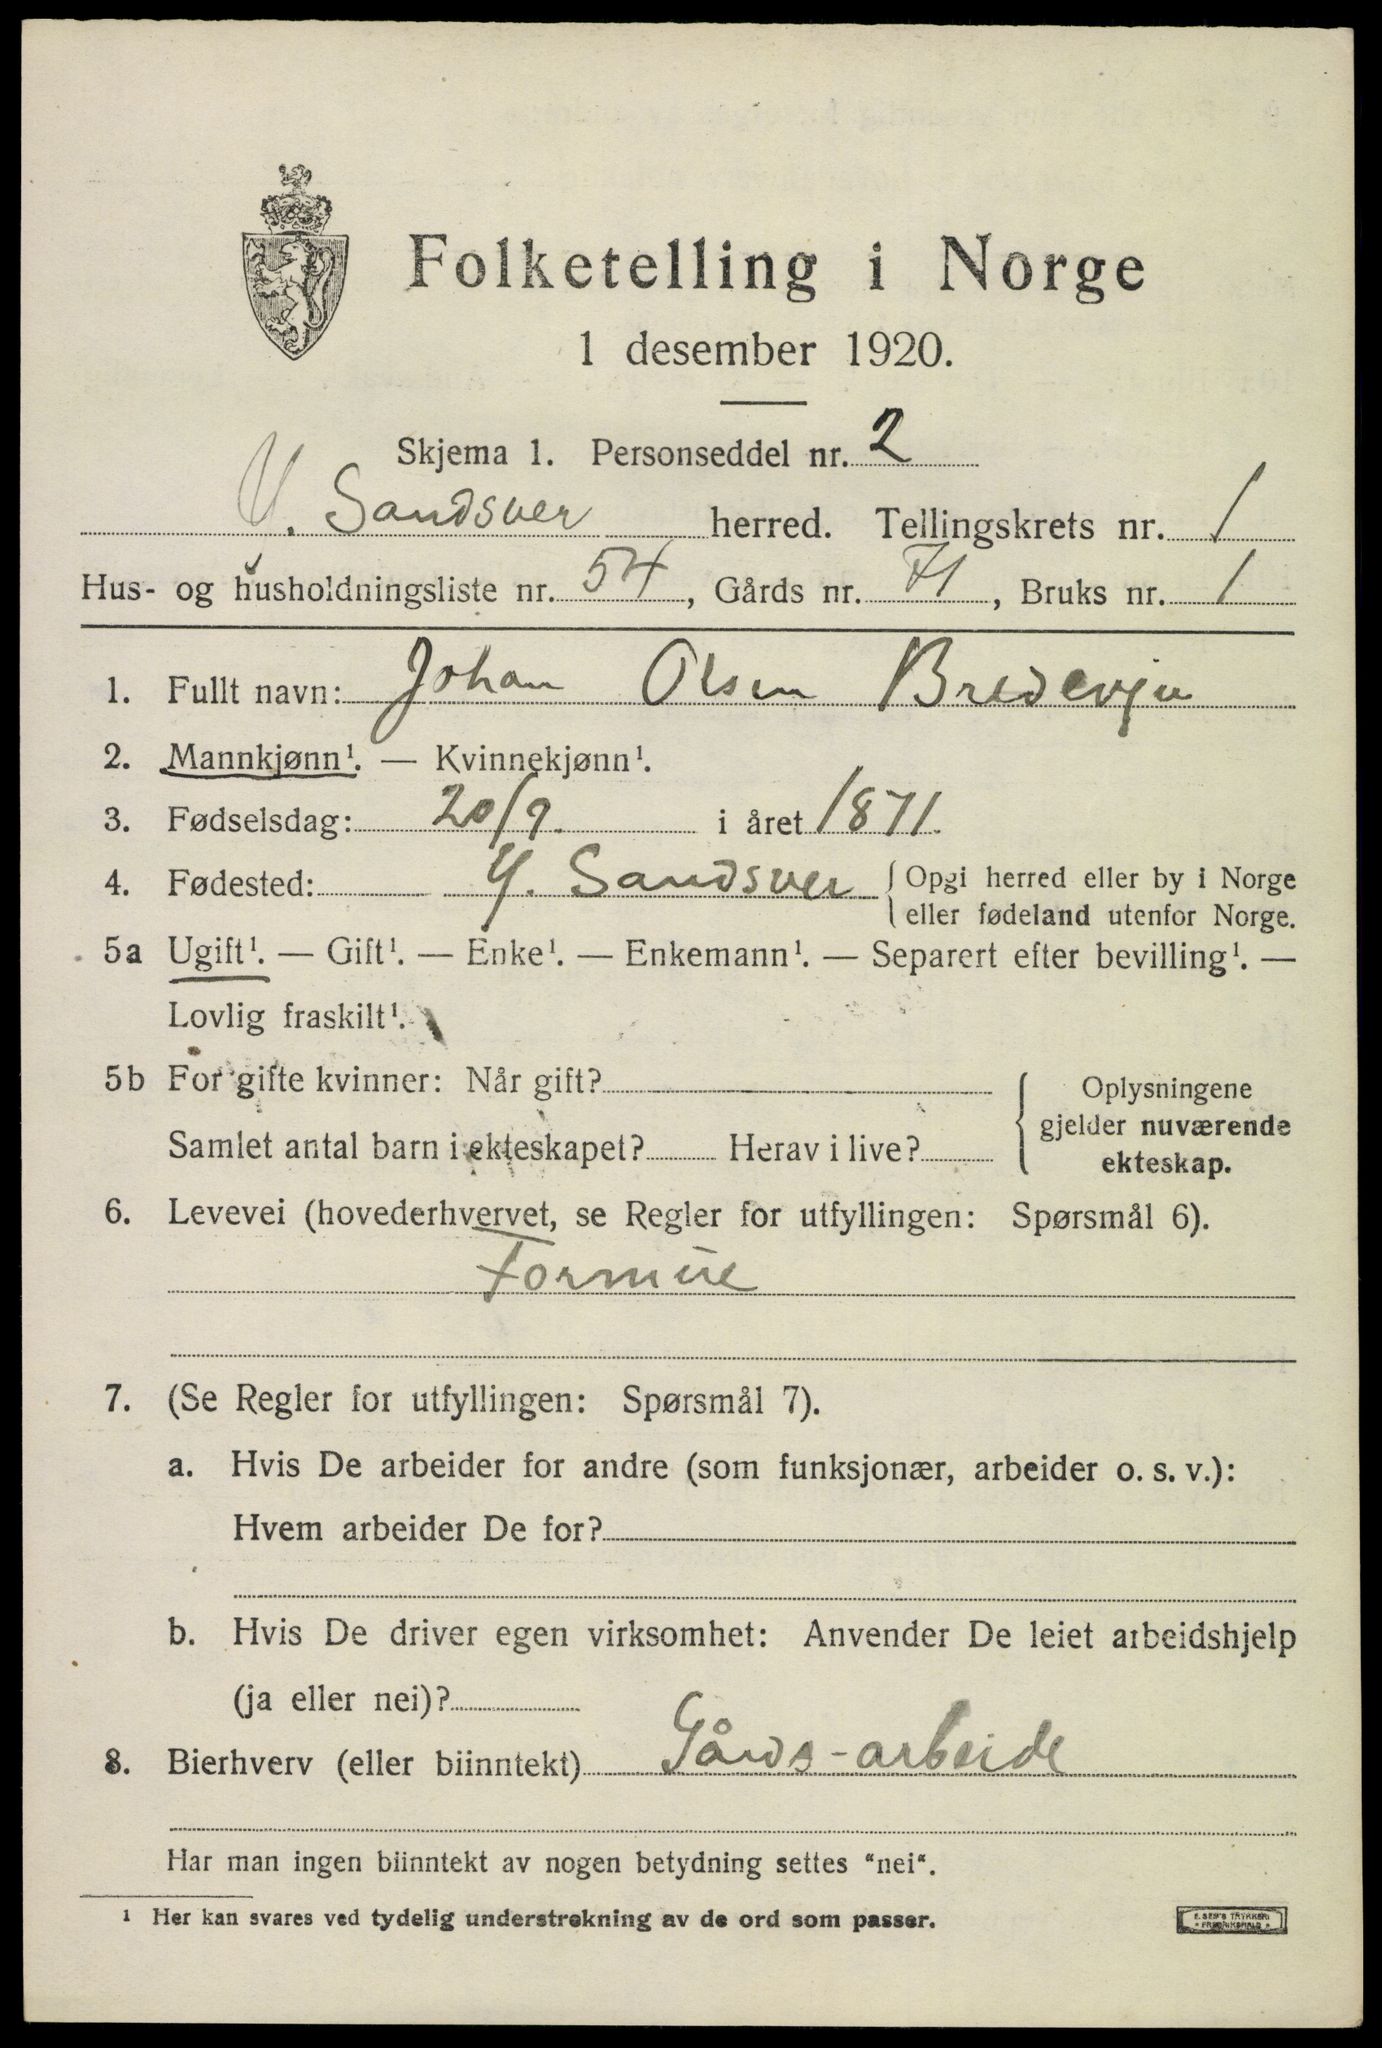 Folketelling i Norge
1 desember 1920.
Skjema 1. Personseddel nr. 2
Y. Sandsver herred. Tellingskrets nr. 1
Hus- og husholdningsliste nr. 54, Gårds nr. 71, Bruks nr. 1
1. Fullt navn: Johan Olsen Bredevju
2. Mannkjønn¹. — Kvinnekjønn¹.
3. Fødselsdag: 20/9. i året 1871.
4. Fødested: Y. Sandsver { Opgi herred eller by i Norge
eller fødeland utenfor Norge.
5a Ugift¹. — Gift¹. — Enke¹. — Enkemann¹. — Separert efter bevilling¹. —
Lovlig fraskilt¹.
5b For gifte kvinner: Når gift?
Samlet antal barn i ekteskapet? Herav i live?
Oplysningene
gjelder nuværende
ekteskap.
6. Levevei (hovederhvervet, se Regler for utfyllingen: Spørsmål 6).
Formue
7. (Se Regler for utfyllingen: Spørsmål 7).
a. Hvis De arbeider for andre (som funksjonær, arbeider o. s. v.):
Hvem arbeider De for?
b. Hvis De driver egen virksomhet: Anvender De leiet arbeidshjelp
(ja eller nei)?
8. Bierhverv (eller biinntekt) Gårds-arbeide
Har man ingen biinntekt av nogen betydning settes "nei".
¹ Her kan svares ved tydelig understrekning av de ord som passer.
E. SEM'S TRYKKERI
FREDRIKSHALD